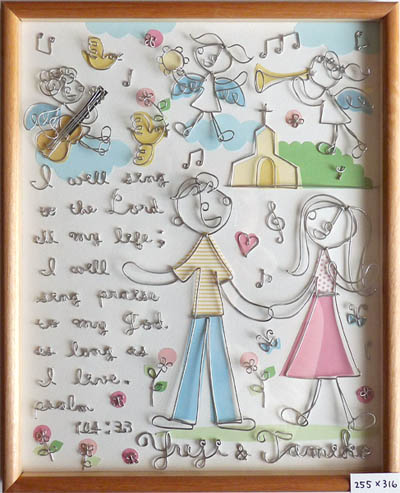 I will sing
to the Lord
all my life;
I will
sing praise
to my God
as long as
I live.
psalm
104:33
Yuji & Tamiko
255 × 316